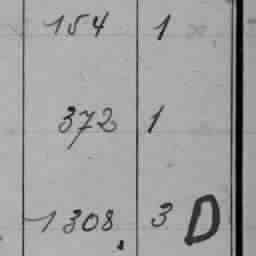 154 1
372 1
1308. 3 D